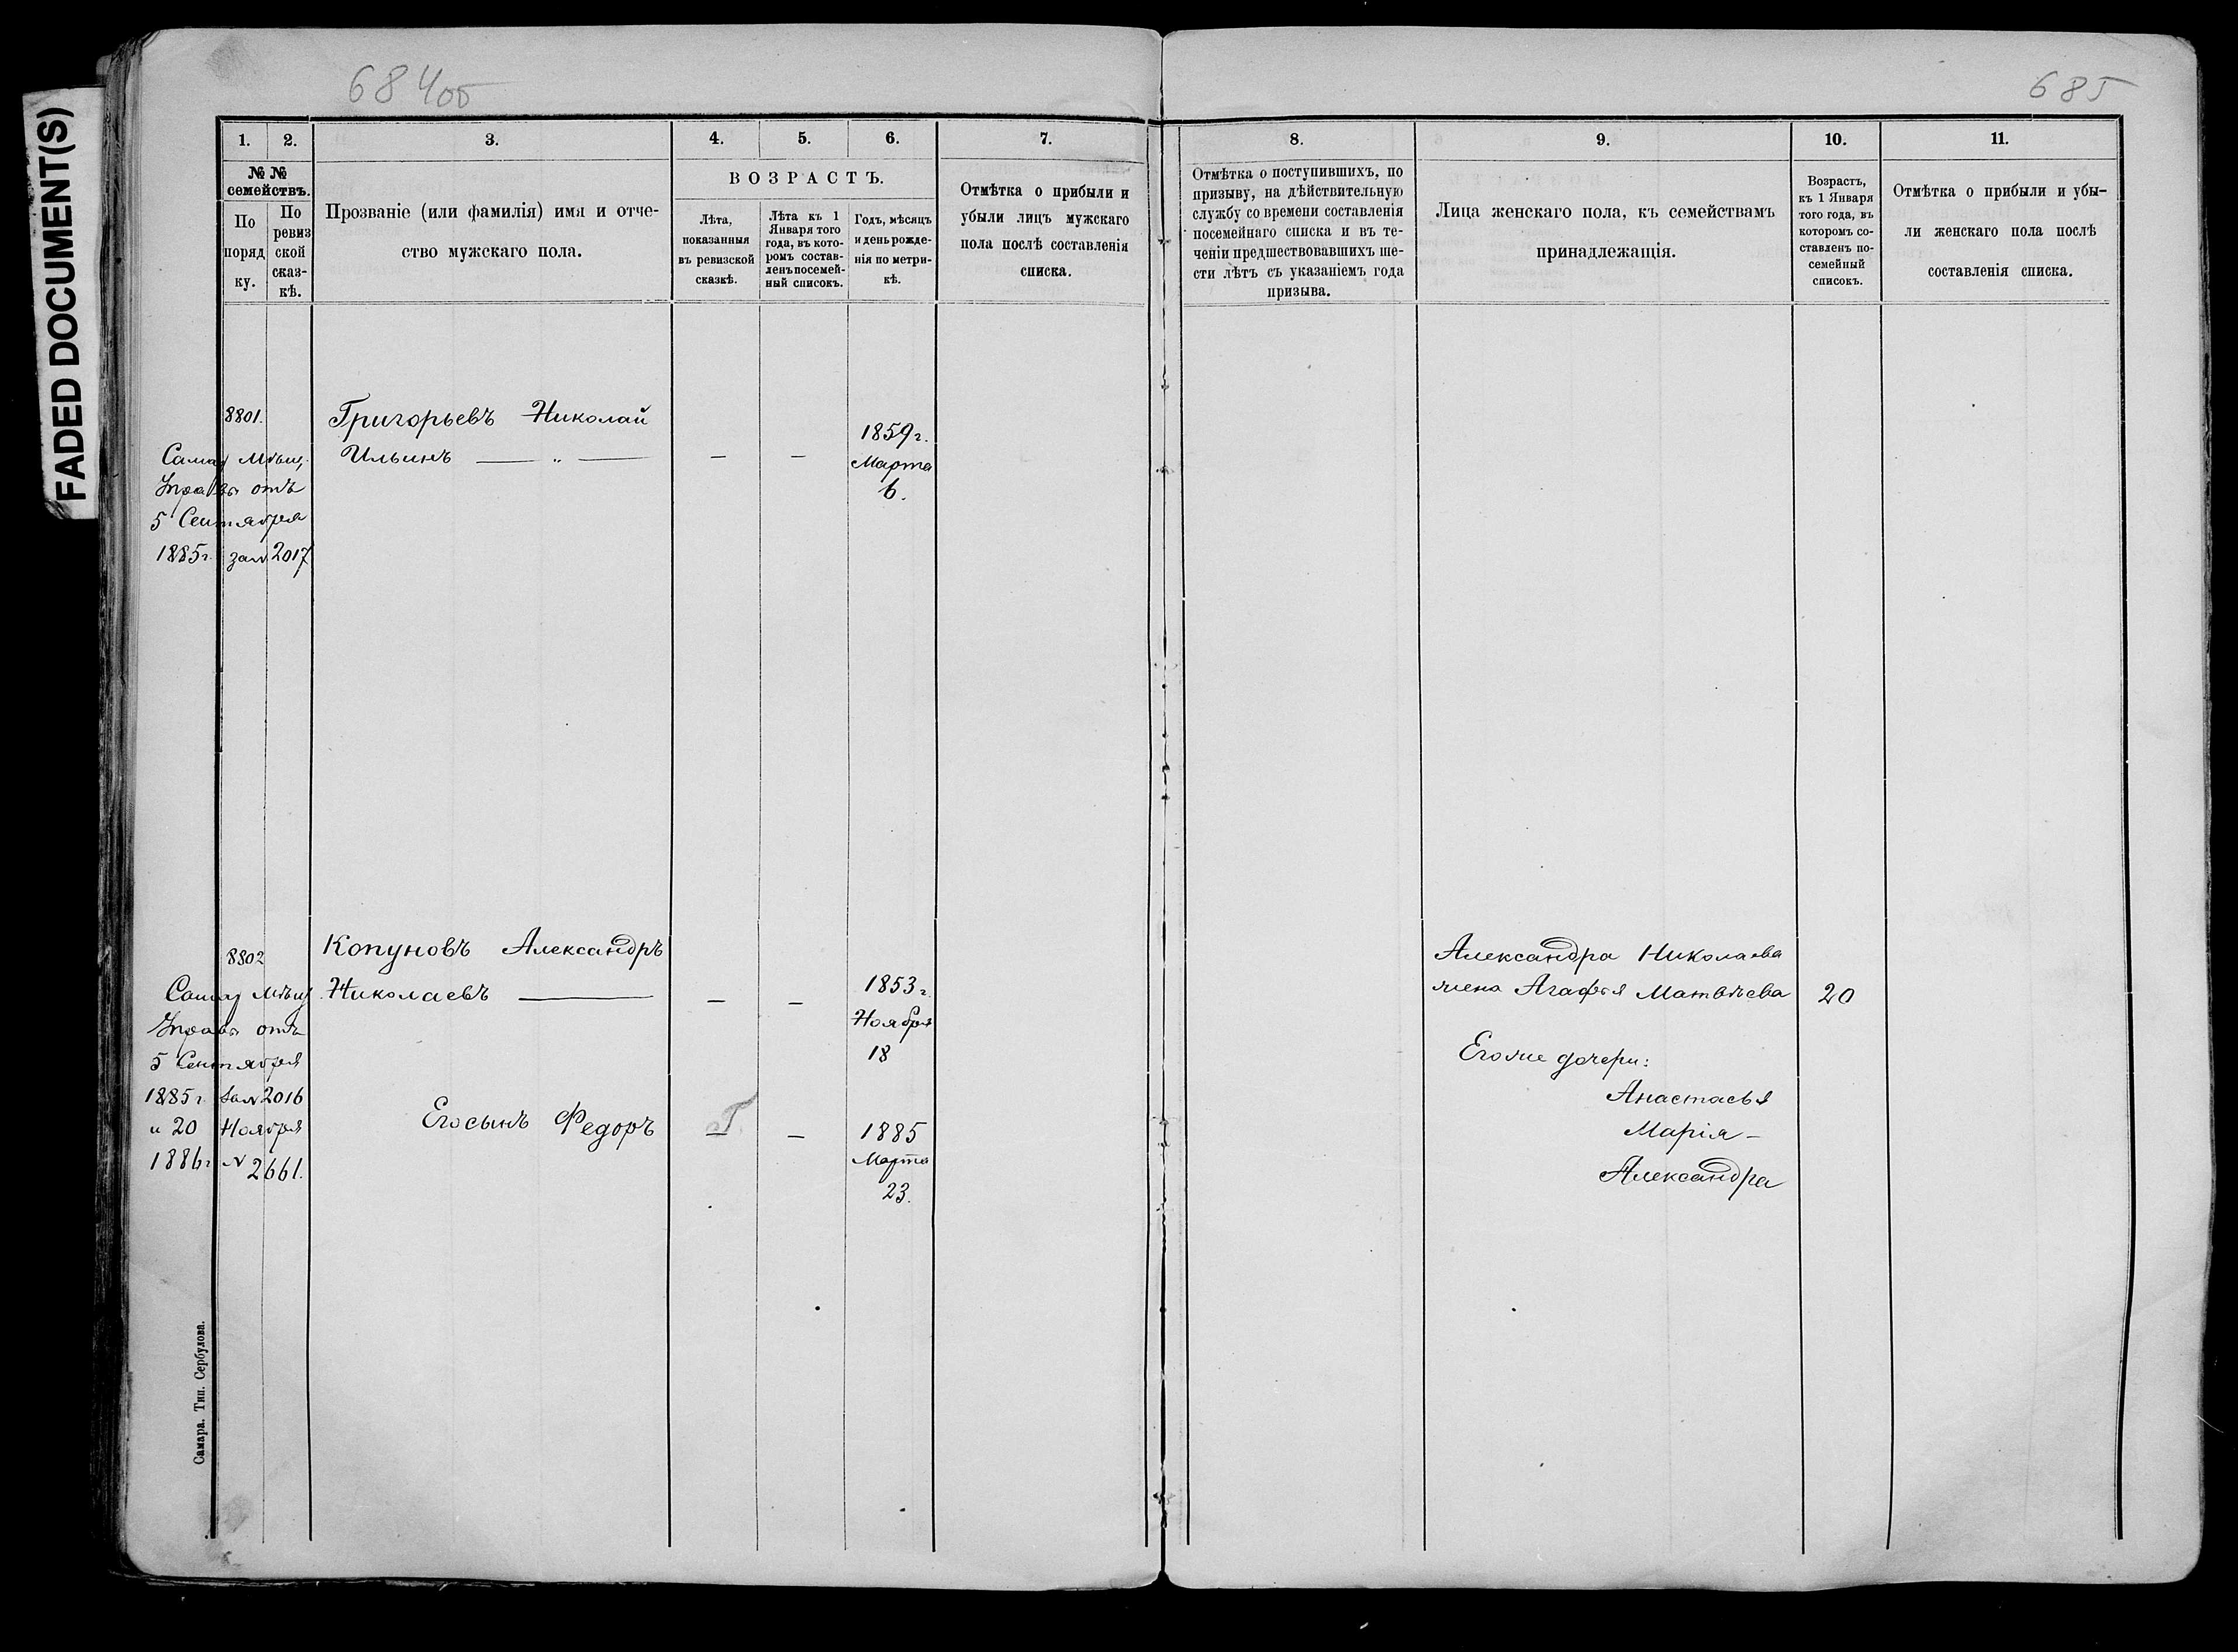 FADED DOCUMENT(S)
684об
685
1. 2. 3. 4. 5. 6. 7.
№ №
семействъ.
По
поряд
ку.
По
ревиз
ской
сказ-
кѣ.
Прозваніе (или фамилія) имя и отче-
ство мужскаго пола.
ВОЗРАСТЪ.
Лѣта,
показанныя
въ ревизской
сказкѣ.
Лѣта къ 1
Января того
года, въ кото-
ромъ состав-
ленъ посемей-
ный списокъ.
Годъ, мѣсяцъ
и день рожде-
нія по метри-
кѣ.
Отмѣтка о прибыли и
убыли лицъ мужскаго
пола послѣ составленія
списка.
8. 9. 10. 11.
Отмѣтка о поступившихъ, по
призыву, на дѣйствительную
службу со времени составленія
посемейнаго списка и въ те-
ченіи предшествовавшихъ ше-
сти лѣтъ съ указаніемъ года
призыва.
Лица женскаго пола, къ семействамъ
принадлежащія.
Возрастъ,
къ 1 Января
того года, въ
которомъ со-
ставленъ по-
семейный
списокъ.
Отмѣтка о прибыли и убы-
ли женскаго пола послѣ
составленія списка.
8801.
Самар Мѣщ.
Управы отъ
5 Сентября
1885г. за № 2017
Григорьевъ Николай
Ильинъ — „ —
— —
1859г.
Марта
6.
8802
Самар Мѣщ
Управы отъ
5 Сентября
1885г за № 2016
и 20 Ноября
1886г № 2661.
Копуновъ Александръ
Николаевъ —
— —
1853г.
Ноября
18
Его сынъ Федоръ
— —
1885
Марта
23.
Александра Николаева
жена Агафья Матвѣева 20
Его же дочери:
Анастасья
Марія —
Александра
Самара. Тип. Сербулова.